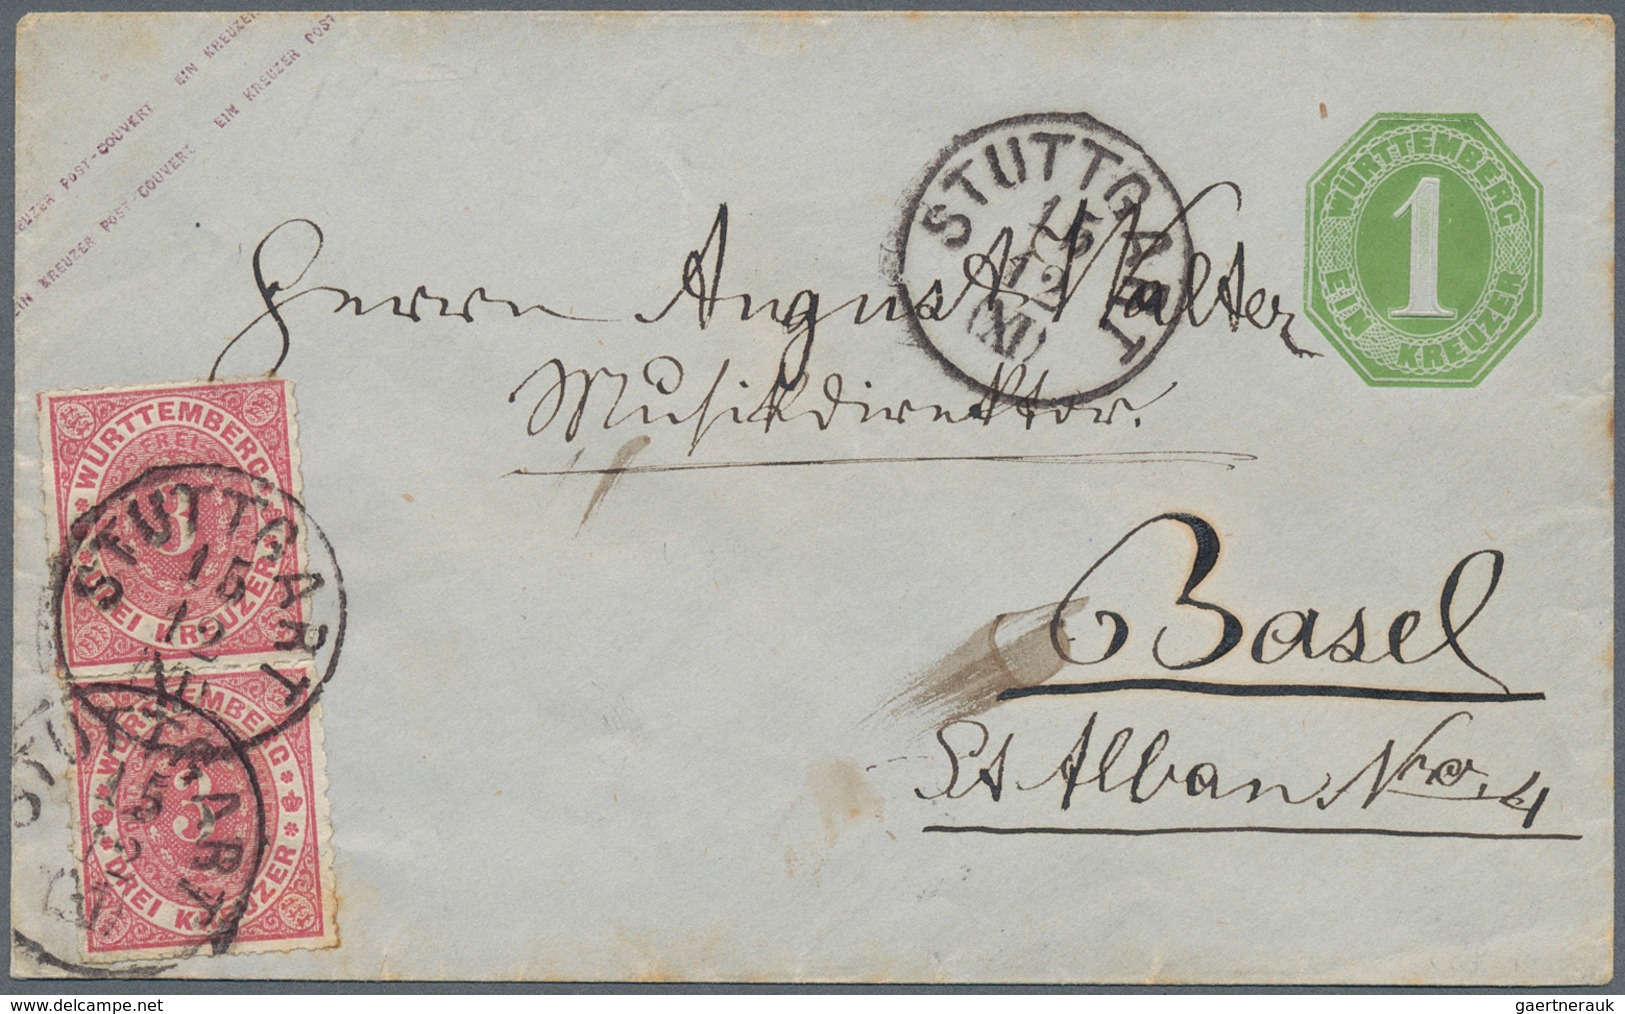 EIN KREUZER
KREUZER POST-COUVERT EIN KREUZER POST
EIN KREUZER POST-COUVERT
STUTTGART
15
12
(XI)
WÜRTTEMBERG
1
EIN KREUZER
Herrn August Walter
Musikdirektor.
Basel
St Alban Nro. 4
WÜRTTEMBERG
3
DREI KREUZER
STUTTGART
15
12
WÜRTTEMBERG
3
DREI KREUZER
STUTTGART
15
12
www.delcampe.net
gaertnerauk